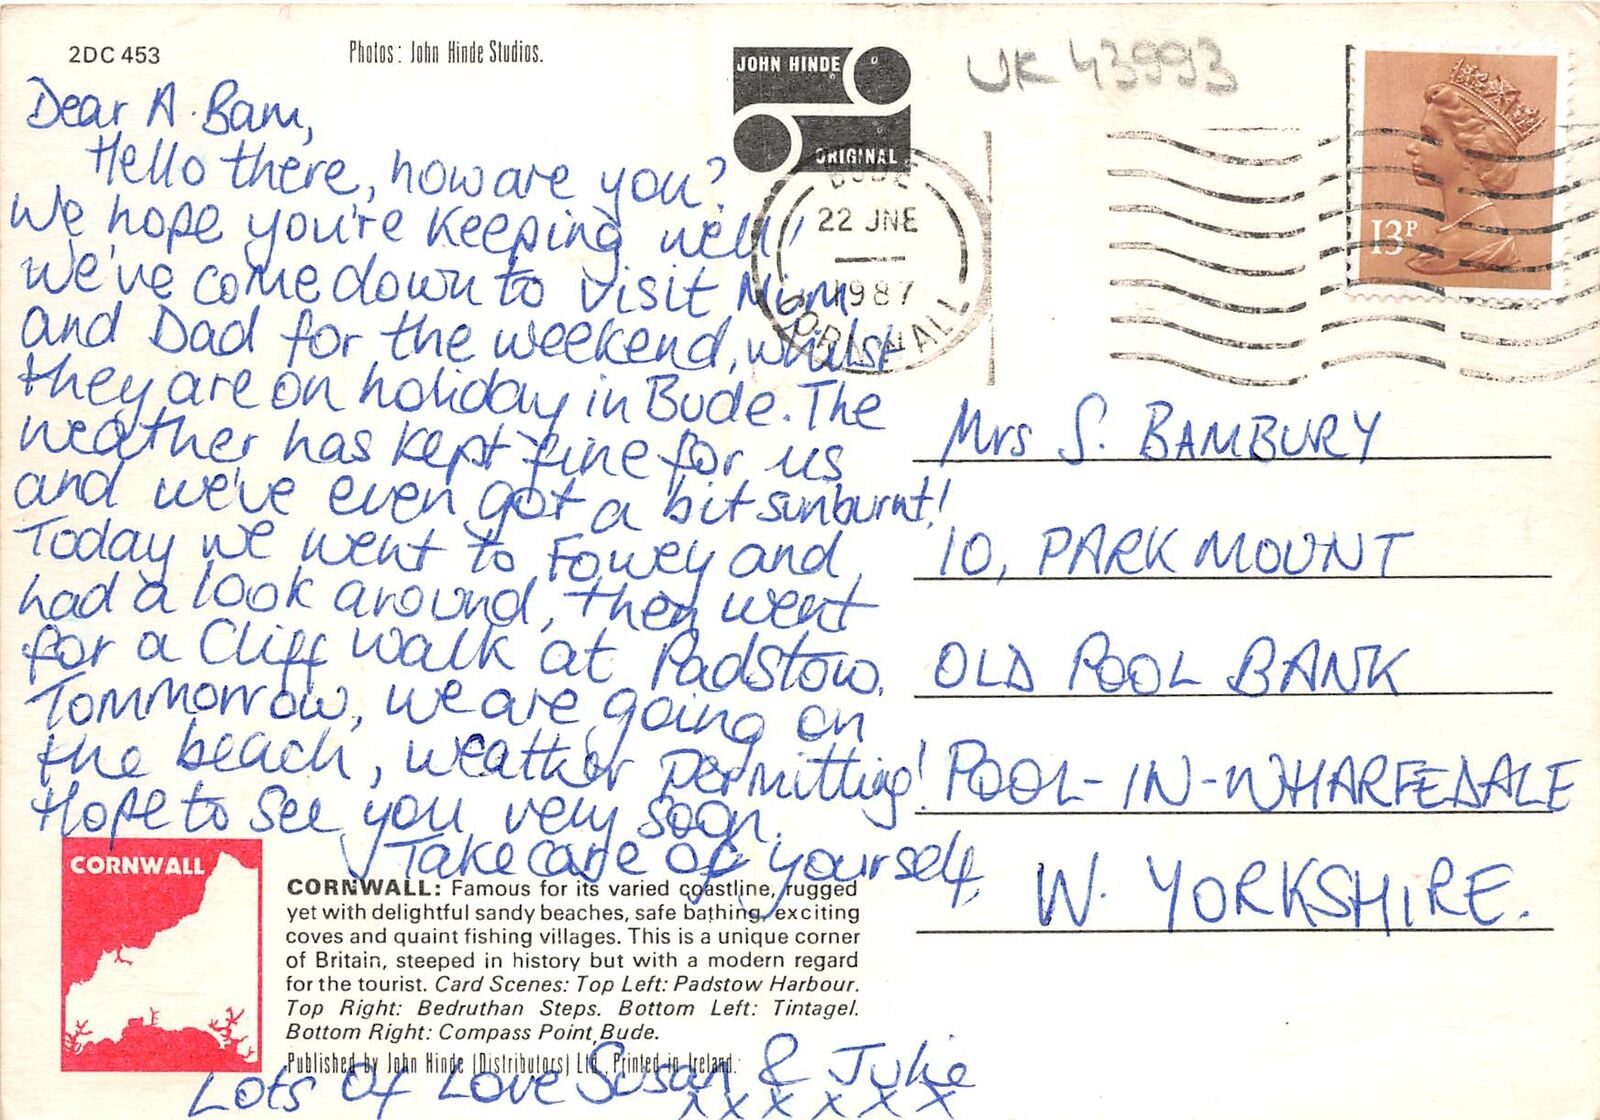 2DC 453
Photos: John Hinde Studios.
JOHN HINDE
ORIGINAL
UK 43993
13P
BUDE
22 JNE
1987
CORNWALL
Dear A. Bam,
Hello there, how are you?
We hope you're keeping well!
We've come down to visit Mum
and Dad for the weekend, whilst
they are on holiday in Bude. The
weather has kept fine for us
and we've even got a bit sunburnt!
Today we went to Fowey and
had a look around, then went
for a Cliff walk at Padstow.
Tommorrow, we are going on
the beach, weather permitting!
Hope to see you very soon.
Take care of yourself,
Lots of Love Susan & Julie
x x x x x x
Mrs S. BAMBURY
10, PARK MOUNT
OLD POOL BANK
POOL-IN-WHARFEDALE
W. YORKSHIRE.
CORNWALL
CORNWALL: Famous for its varied coastline, rugged
yet with delightful sandy beaches, safe bathing, exciting
coves and quaint fishing villages. This is a unique corner
of Britain, steeped in history but with a modern regard
for the tourist. Card Scenes: Top Left: Padstow Harbour.
Top Right: Bedruthan Steps. Bottom Left: Tintagel.
Bottom Right: Compass Point, Bude.
Published by John Hinde (Distributors) Ltd. Printed in Ireland.